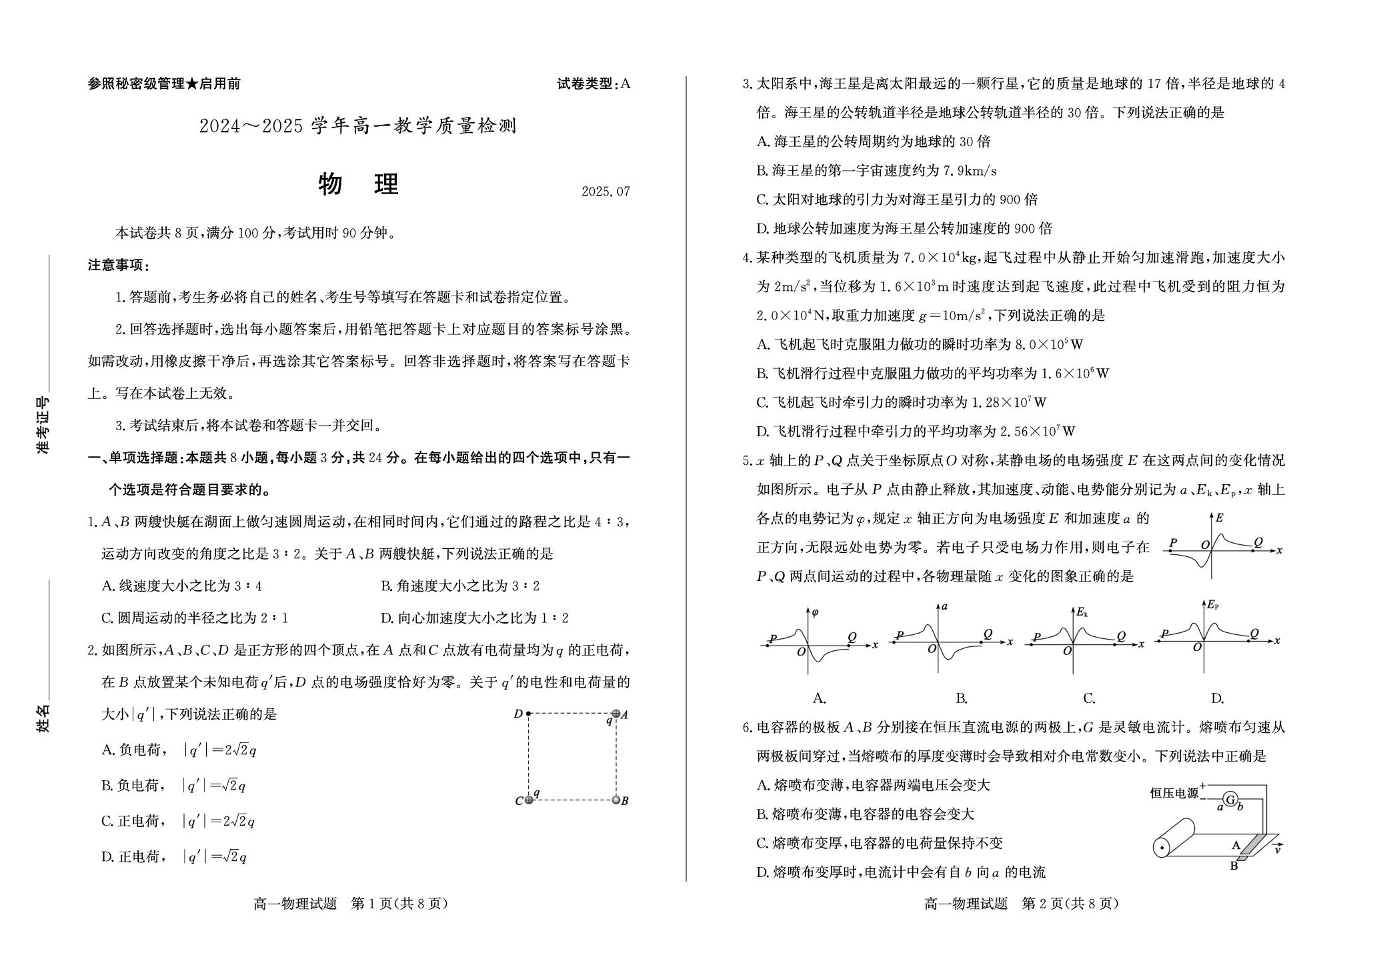 参照秘密级管理★启用前 试卷类型:A
2024～2025 学年高一教学质量检测
物 理
2025.07
本试卷共 8 页,满分 100 分,考试用时 90 分钟。
注意事项:
1. 答题前,考生务必将自己的姓名、考生号等填写在答题卡和试卷指定位置。
2. 回答选择题时,选出每小题答案后,用铅笔把答题卡上对应题目的答案标号涂黑。
如需改动,用橡皮擦干净后,再选涂其它答案标号。回答非选择题时,将答案写在答题卡
上。写在本试卷上无效。
3. 考试结束后,将本试卷和答题卡一并交回。
一、单项选择题:本题共 8 小题,每小题 3 分,共 24 分。在每小题给出的四个选项中,只有一
个选项是符合题目要求的。
1. A、B 两艘快艇在湖面上做匀速圆周运动,在相同时间内,它们通过的路程之比是 4∶3,
运动方向改变的角度之比是 3∶2。关于 A、B 两艘快艇,下列说法正确的是
A. 线速度大小之比为 3∶4 B. 角速度大小之比为 3∶2
C. 圆周运动的半径之比为 2∶1 D. 向心加速度大小之比为 1∶2
2. 如图所示,A、B、C、D 是正方形的四个顶点,在 A 点和 C 点放有电荷量均为 q 的正电荷,
在 B 点放置某个未知电荷 q′后,D 点的电场强度恰好为零。关于 q′的电性和电荷量的
大小|q′|,下列说法正确的是
A. 负电荷, |q′|=2√2q
B. 负电荷, |q′|=√2q
C. 正电荷, |q′|=2√2q
D. 正电荷, |q′|=√2q
D A
q
q
C B
高一物理试题 第 1 页(共 8 页)
准考证号
姓名
3. 太阳系中,海王星是离太阳最远的一颗行星,它的质量是地球的 17 倍,半径是地球的 4
倍。海王星的公转轨道半径是地球公转轨道半径的 30 倍。下列说法正确的是
A. 海王星的公转周期约为地球的 30 倍
B. 海王星的第一宇宙速度约为 7.9km/s
C. 太阳对地球的引力为对海王星引力的 900 倍
D. 地球公转加速度为海王星公转加速度的 900 倍
4. 某种类型的飞机质量为 7.0×10⁴kg,起飞过程中从静止开始匀加速滑跑,加速度大小
为 2m/s²,当位移为 1.6×10³m 时速度达到起飞速度,此过程中飞机受到的阻力恒为
2.0×10⁴N,取重力加速度 g=10m/s²,下列说法正确的是
A. 飞机起飞时克服阻力做功的瞬时功率为 8.0×10⁵W
B. 飞机滑行过程中克服阻力做功的平均功率为 1.6×10⁶W
C. 飞机起飞时牵引力的瞬时功率为 1.28×10⁷W
D. 飞机滑行过程中牵引力的平均功率为 2.56×10⁷W
5. x 轴上的 P、Q 点关于坐标原点 O 对称,某静电场的电场强度 E 在这两点间的变化情况
如图所示。电子从 P 点由静止释放,其加速度、动能、电势能分别记为 a、Eₖ、Eₚ,x 轴上
各点的电势记为 φ,规定 x 轴正方向为电场强度 E 和加速度 a 的
正方向,无限远处电势为零。若电子只受电场力作用,则电子在
P、Q 两点间运动的过程中,各物理量随 x 变化的图象正确的是
E
P O Q x
φ
P O Q x
a
P O Q x
Eₖ
P O Q x
Eₚ
P O Q x
A. B. C. D.
6. 电容器的极板 A、B 分别接在恒压直流电源的两极上,G 是灵敏电流计。熔喷布匀速从
两极板间穿过,当熔喷布的厚度变薄时会导致相对介电常数变小。下列说法中正确是
A. 熔喷布变薄,电容器两端电压会变大
B. 熔喷布变薄,电容器的电容会变大
C. 熔喷布变厚,电容器的电荷量保持不变
D. 熔喷布变厚时,电流计中会有自 b 向 a 的电流
恒压电源
+
−
G
a b
A
B
v
高一物理试题 第 2 页(共 8 页)